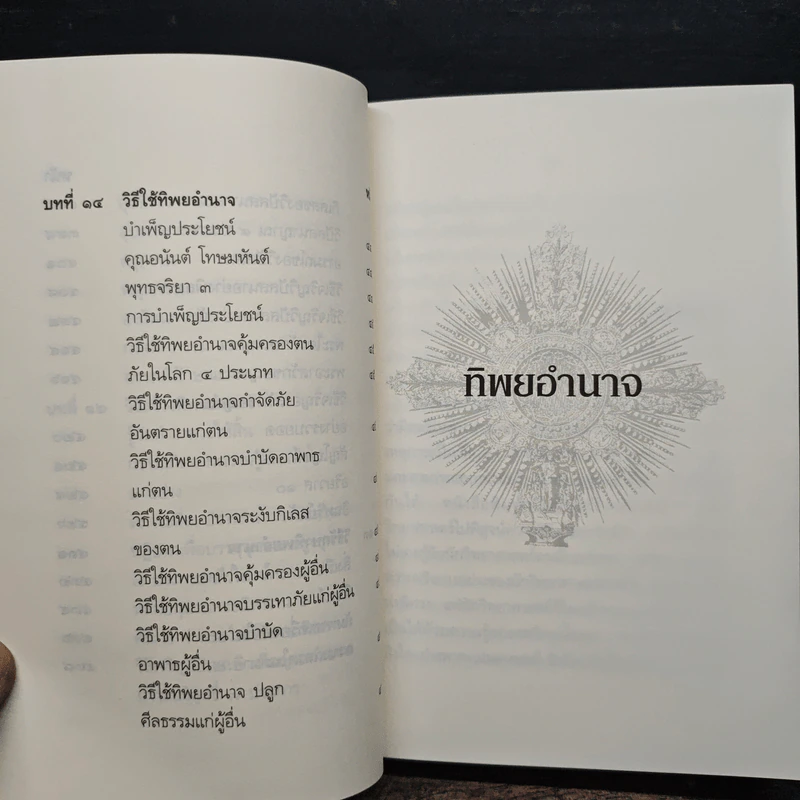 บทที่ ๑๔ วิธีใช้ทิพยอำนาจ
บำเพ็ญประโยชน์
คุณอนันต์ โทษมหันต์
พุทธจริยา ๓
การบำเพ็ญประโยชน์
วิธีใช้ทิพยอำนาจคุ้มครองตน
ภัยในโลก ๔ ประเภท
วิธีใช้ทิพยอำนาจกำจัดภัย
อันตรายแก่ตน
วิธีใช้ทิพยอำนาจบำบัดอาพาธ
แก่ตน
วิธีใช้ทิพยอำนาจระงับกิเลส
ของตน
วิธีใช้ทิพยอำนาจคุ้มครองผู้อื่น
วิธีใช้ทิพยอำนาจบรรเทาภัยแก่ผู้อื่น
วิธีใช้ทิพยอำนาจบำบัด
อาพาธผู้อื่น
วิธีใช้ทิพยอำนาจ ปลูก
ศีลธรรมแก่ผู้อื่น
ทิพยอำนาจ